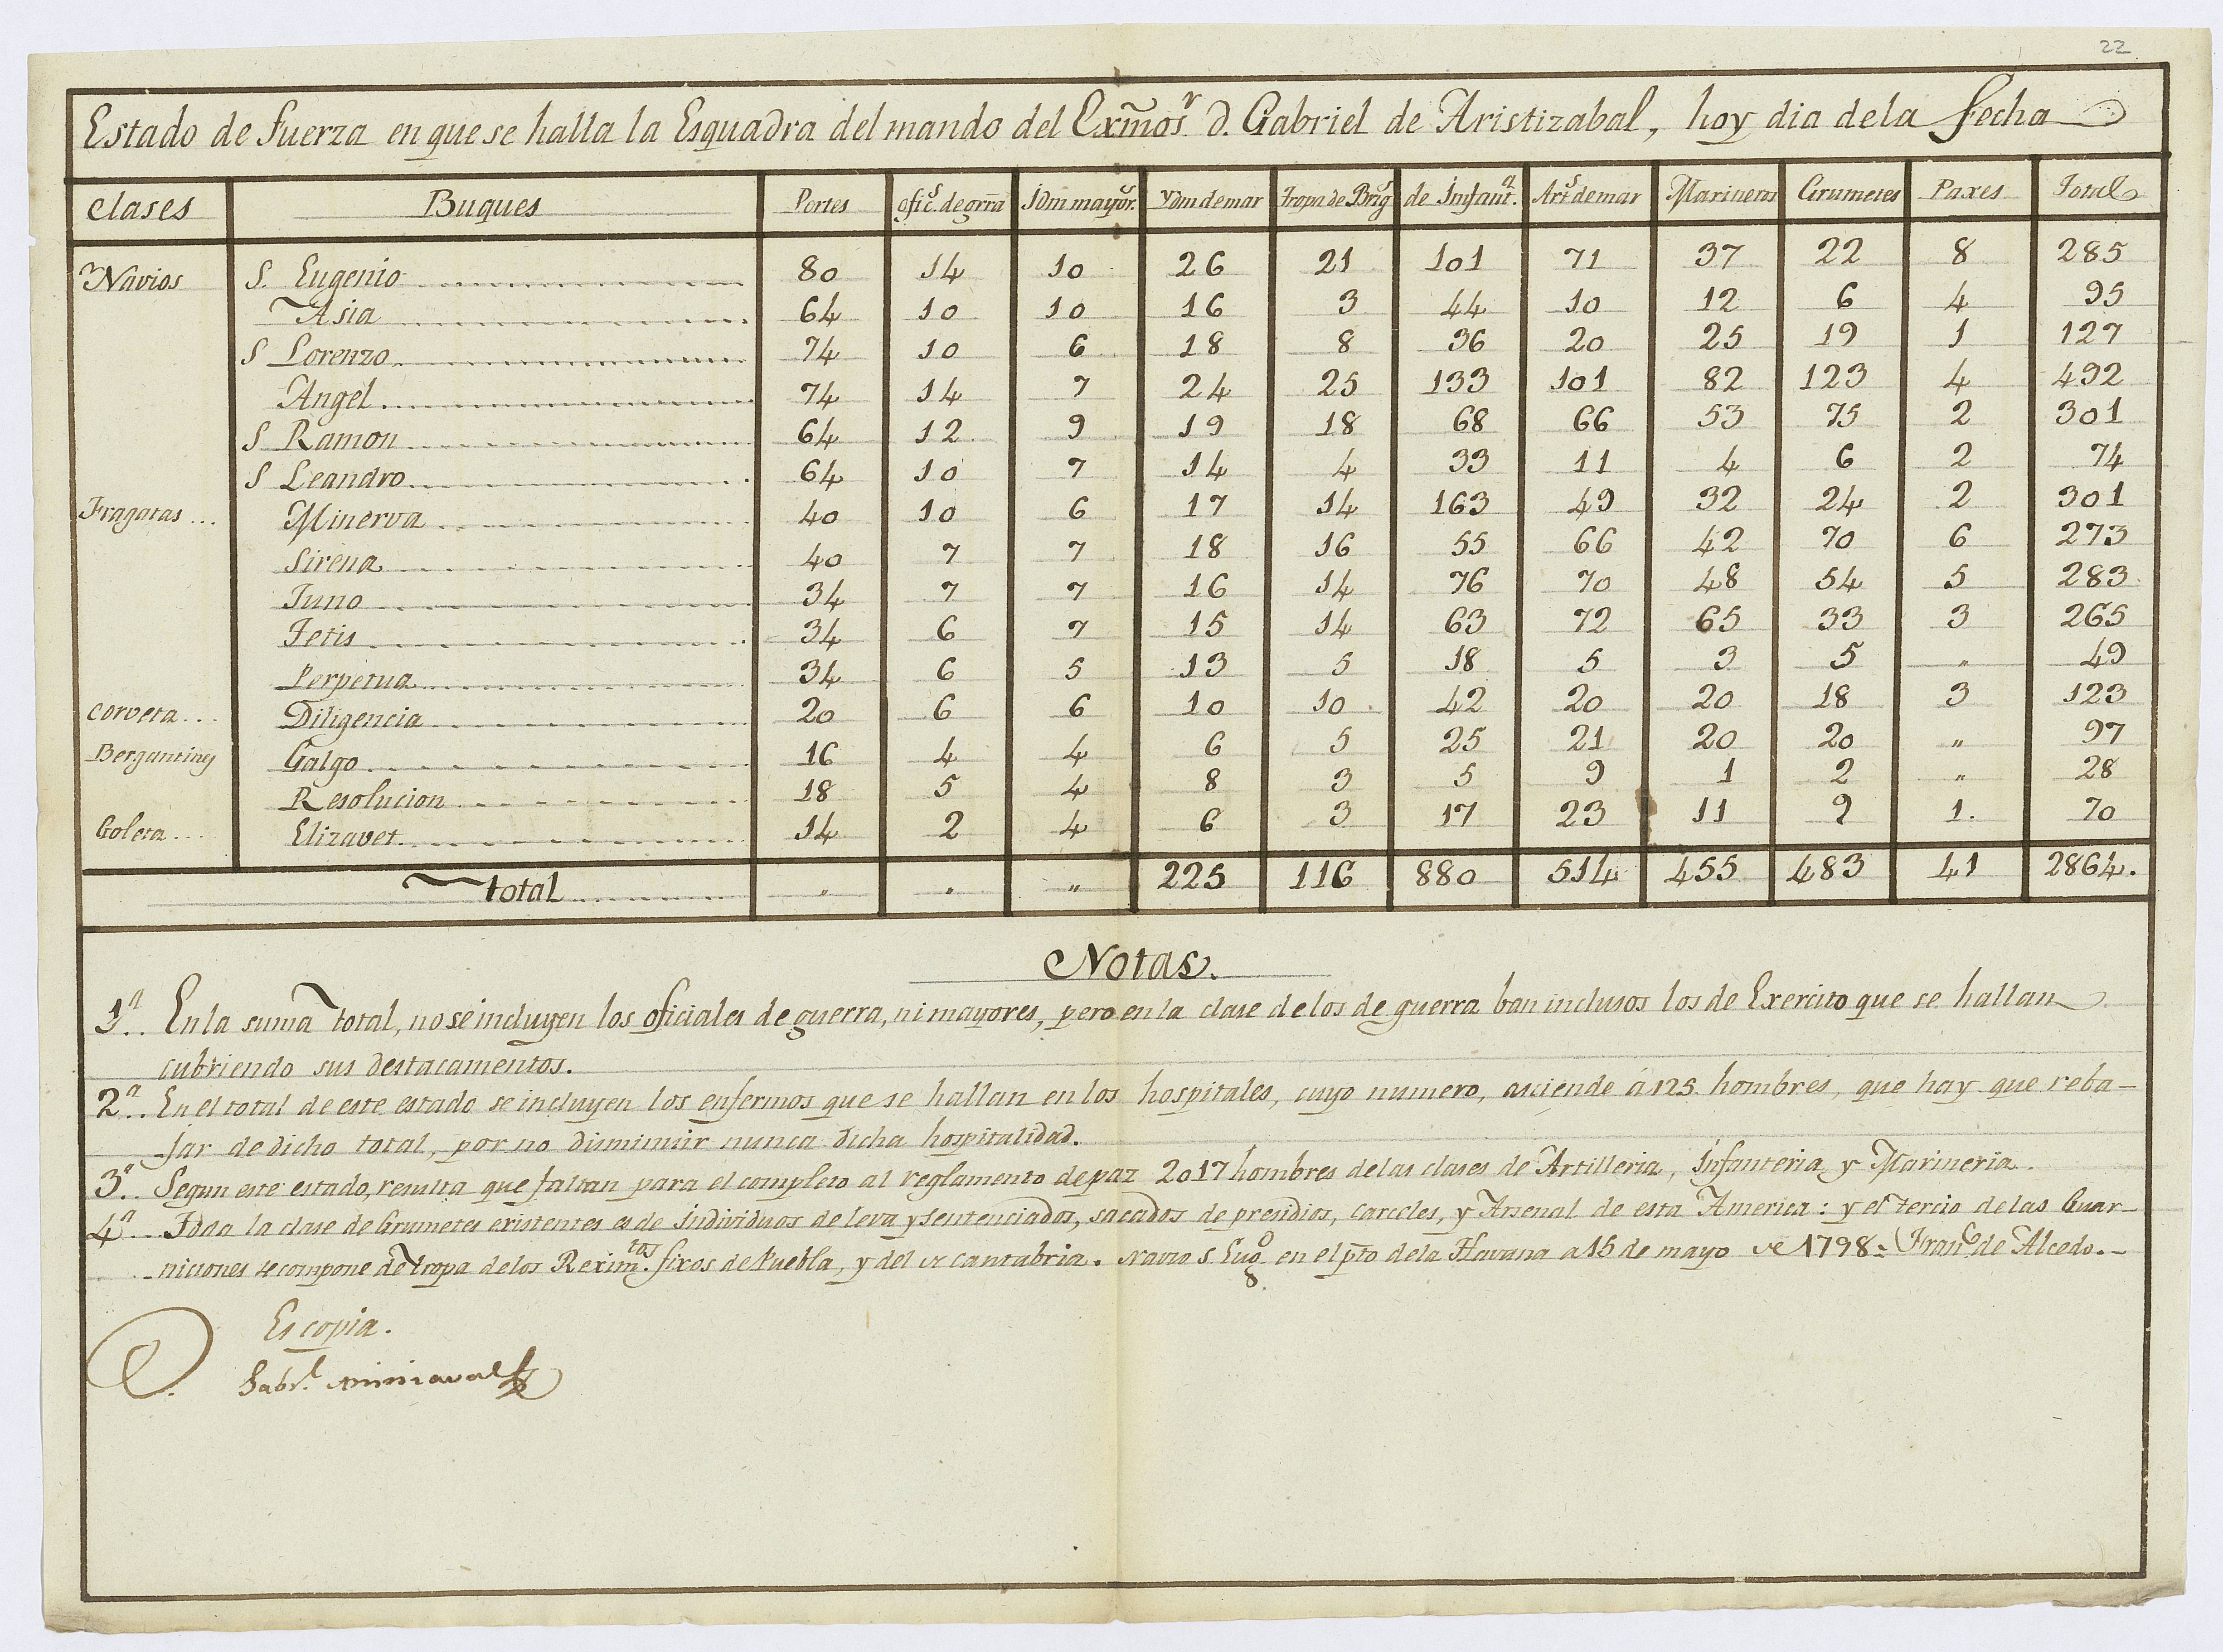 22
Estado de fuerza en que se halla la Esquadra del mando del Exmõ Sr. D. Gabriel de Aristizabal, hoy dia dela fecha
Clases Buques Portes ofics. de grra Idm mayors. Ydm de mar Tropa de Brigs de Infanta. Arts de mar Marineros Grumetes Paxes Total
Navios S. Eugenio 80 14 10 26 21 101 71 37 22 8 285
Asia 64 10 10 16 3 44 10 12 6 4 95
S Lorenzo 74 10 6 18 8 36 20 25 19 1 127
Angel 74 14 7 24 25 133 101 82 123 4 492
S Ramon 64 12 9 19 18 68 66 53 75 2 301
S Leandro 64 10 7 14 4 33 11 4 6 2 74
Fragatas... Minerva 40 10 6 17 14 163 49 32 24 2 301
Sirena 40 7 7 18 16 55 66 42 70 6 273
Juno 34 7 7 16 14 76 70 48 54 5 283
Tetis 34 6 7 15 14 63 72 65 33 3 265
Perpetua 34 6 5 13 5 18 5 3 5 „ 49
Corveta... Diligencia 20 6 6 10 10 42 20 20 18 3 123
Bergantines Galgo 16 4 4 6 5 25 21 20 20 „ 97
Resolucion 18 5 4 8 3 5 9 1 2 „ 28
Goleta... Elizavet 14 2 4 6 3 17 23 11 9 1. 70
Total „ „ „ 225 116 880 514 455 483 41 2864.
Notas.
1ª.. En la suma total, no se incluyen los oficiales de guerra, ni mayores, pero en la clase de los de guerra ban inclusos los de Exercito que se hallan
cubriendo sus destacamentos.
2ª.. En el total de este estado se incluyen los enfermos que se hallan en los hospitales, cuyo numero, asciende á 125 hombres, que hay que reba-
jar de dicho total, por no disminuir nunca dicha hospitalidad.
3ª.. Segun este estado, resulta que faltan para el completo al reglamento de paz 2017 hombres de las clases de Artilleria, Infanteria y Marineria.
4ª... Toda la clase de Grumetes existentes es de individuos de leva y sentenciados, sacados de presidios, carceles, y Arsenal de esta America: y el tercio de las Guar-
niciones se compone de tropa de los Reximtos. fixos de Puebla, y del de Cantabria. Navio S Eugo en el pto dela Havana a 15 de mayo de 1798= Franco de Alcedo.-
Es copia.
Gabrl. Aristizaval